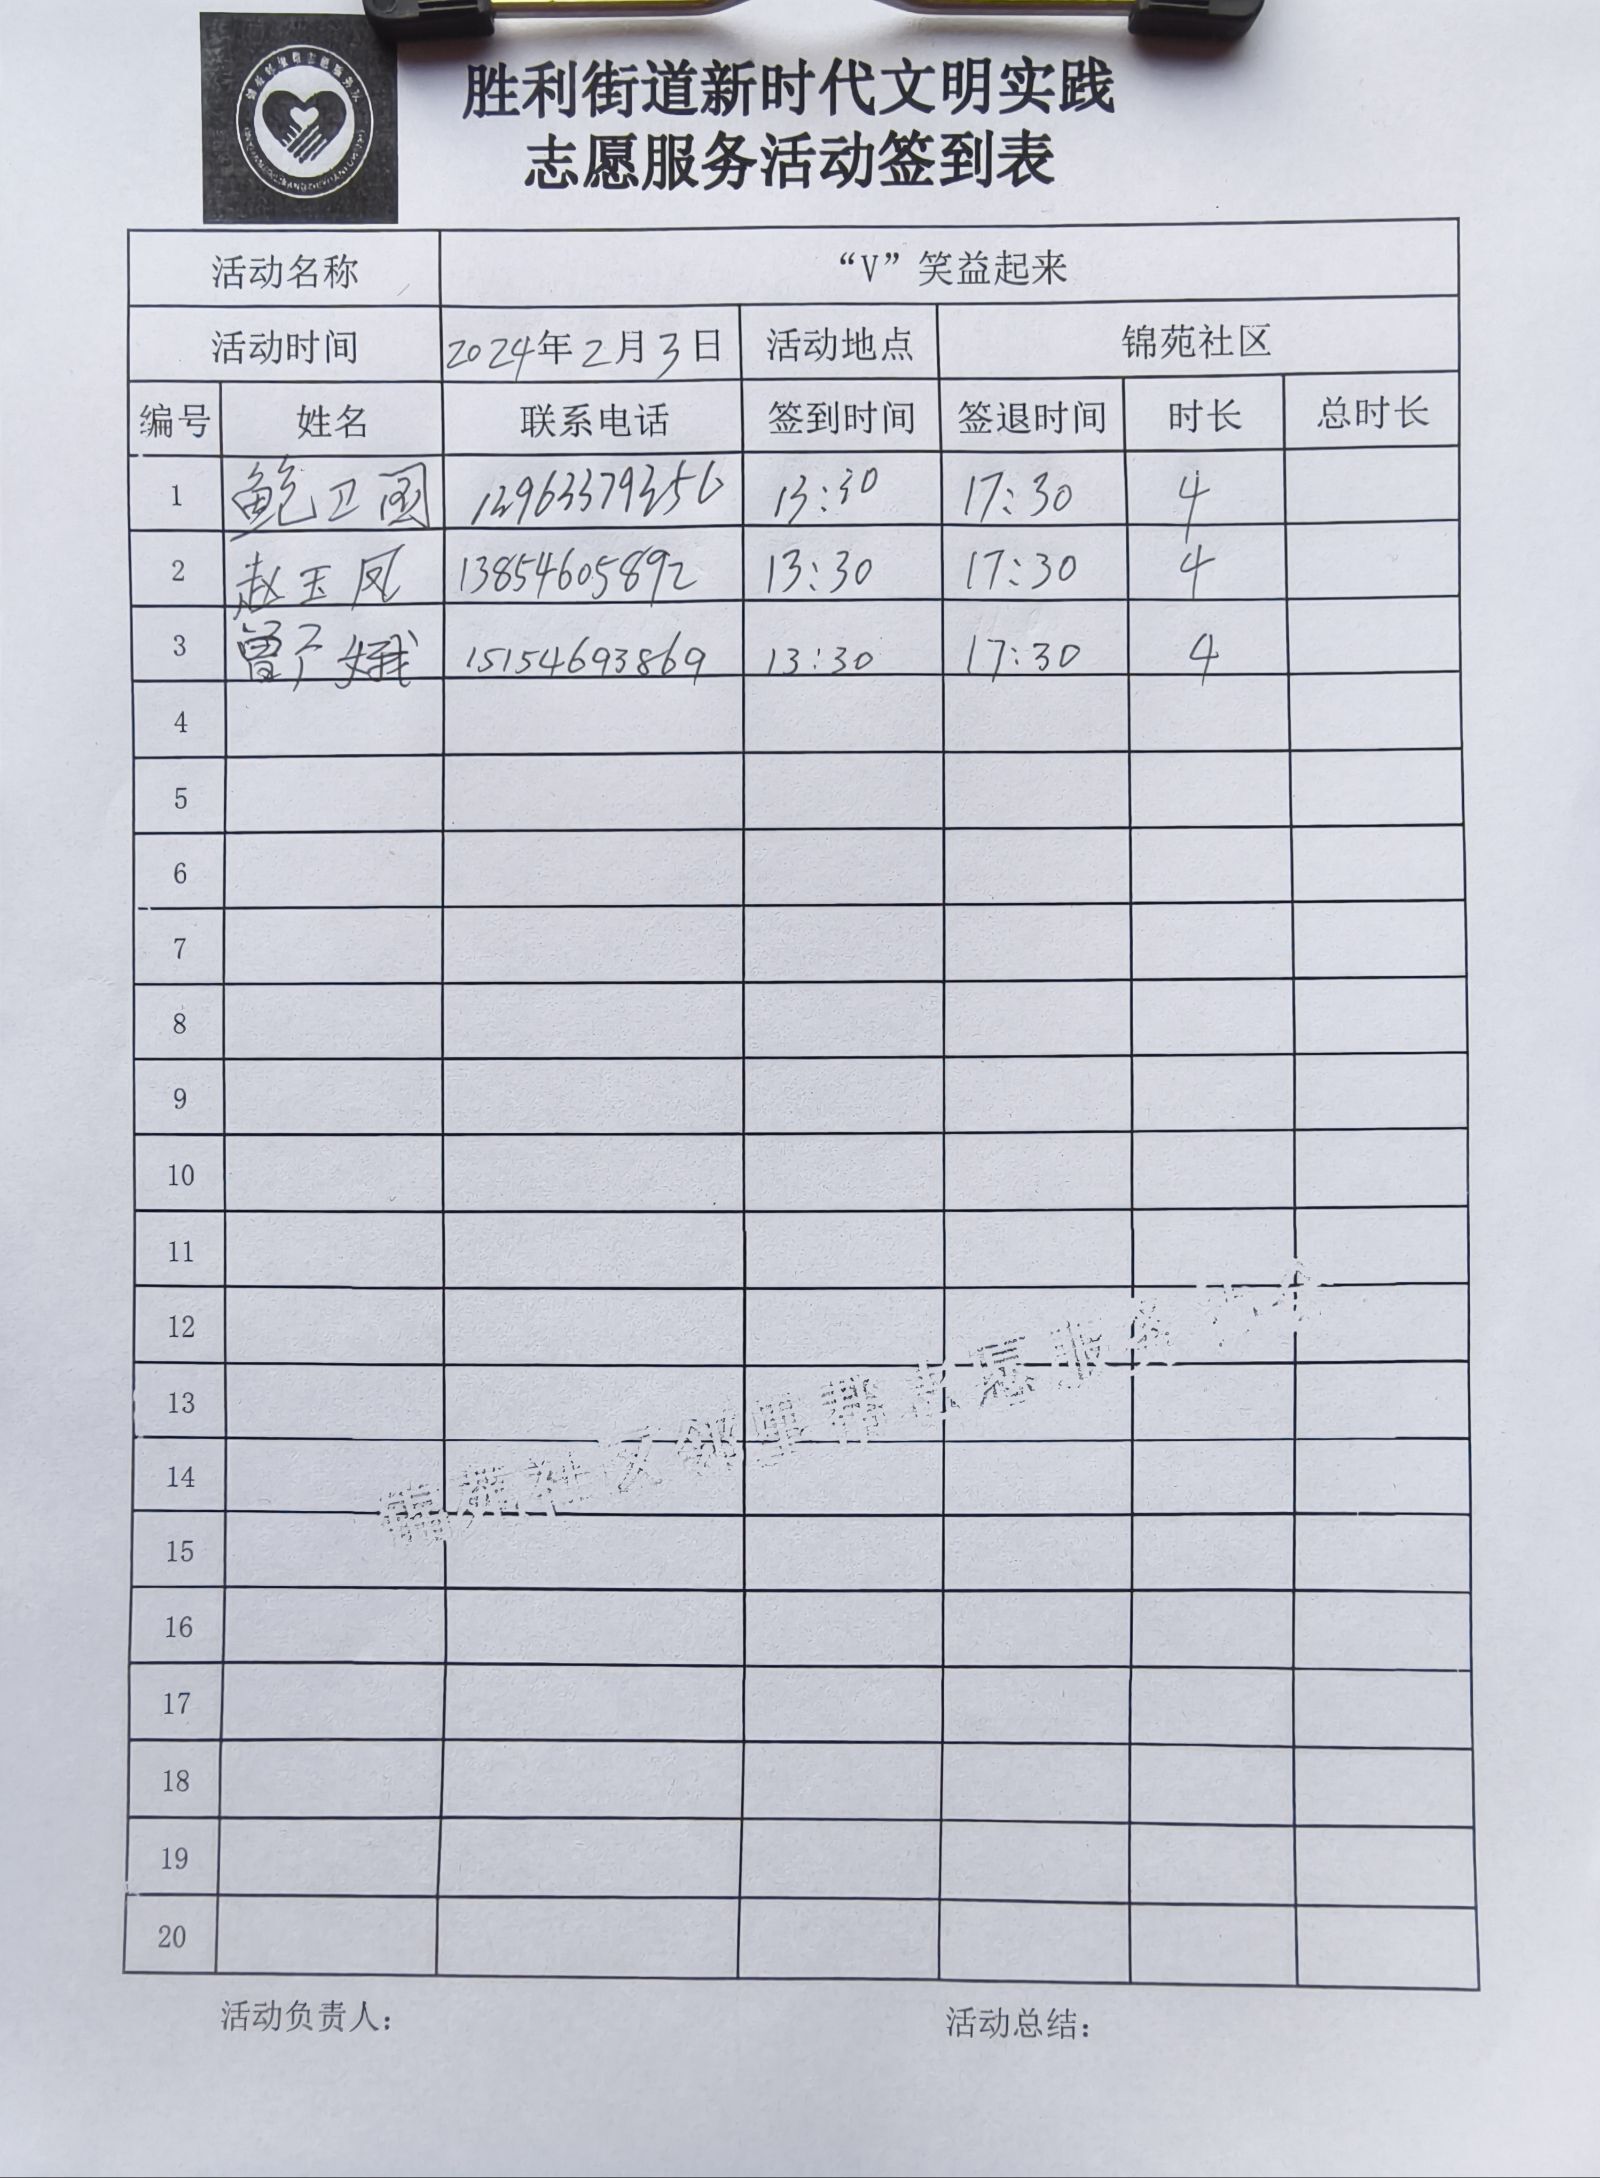 胜利街道新时代文明实践
志愿服务活动签到表
活动名称 “V”笑益起来
活动时间 2024年2月3日 活动地点 锦苑社区
编号 姓名 联系电话 签到时间 签退时间 时长 总时长
1 鲍卫国 13:30 17:30 4
2 赵玉凤 13854605892 13:30 17:30 4
3 15154693869 13:30 17:30 4
4
5
6
7
8
9
10
11
12
13
14
15
16
17
18
19
20
锦苑社区邻里帮志愿服务
活动负责人： 活动总结：